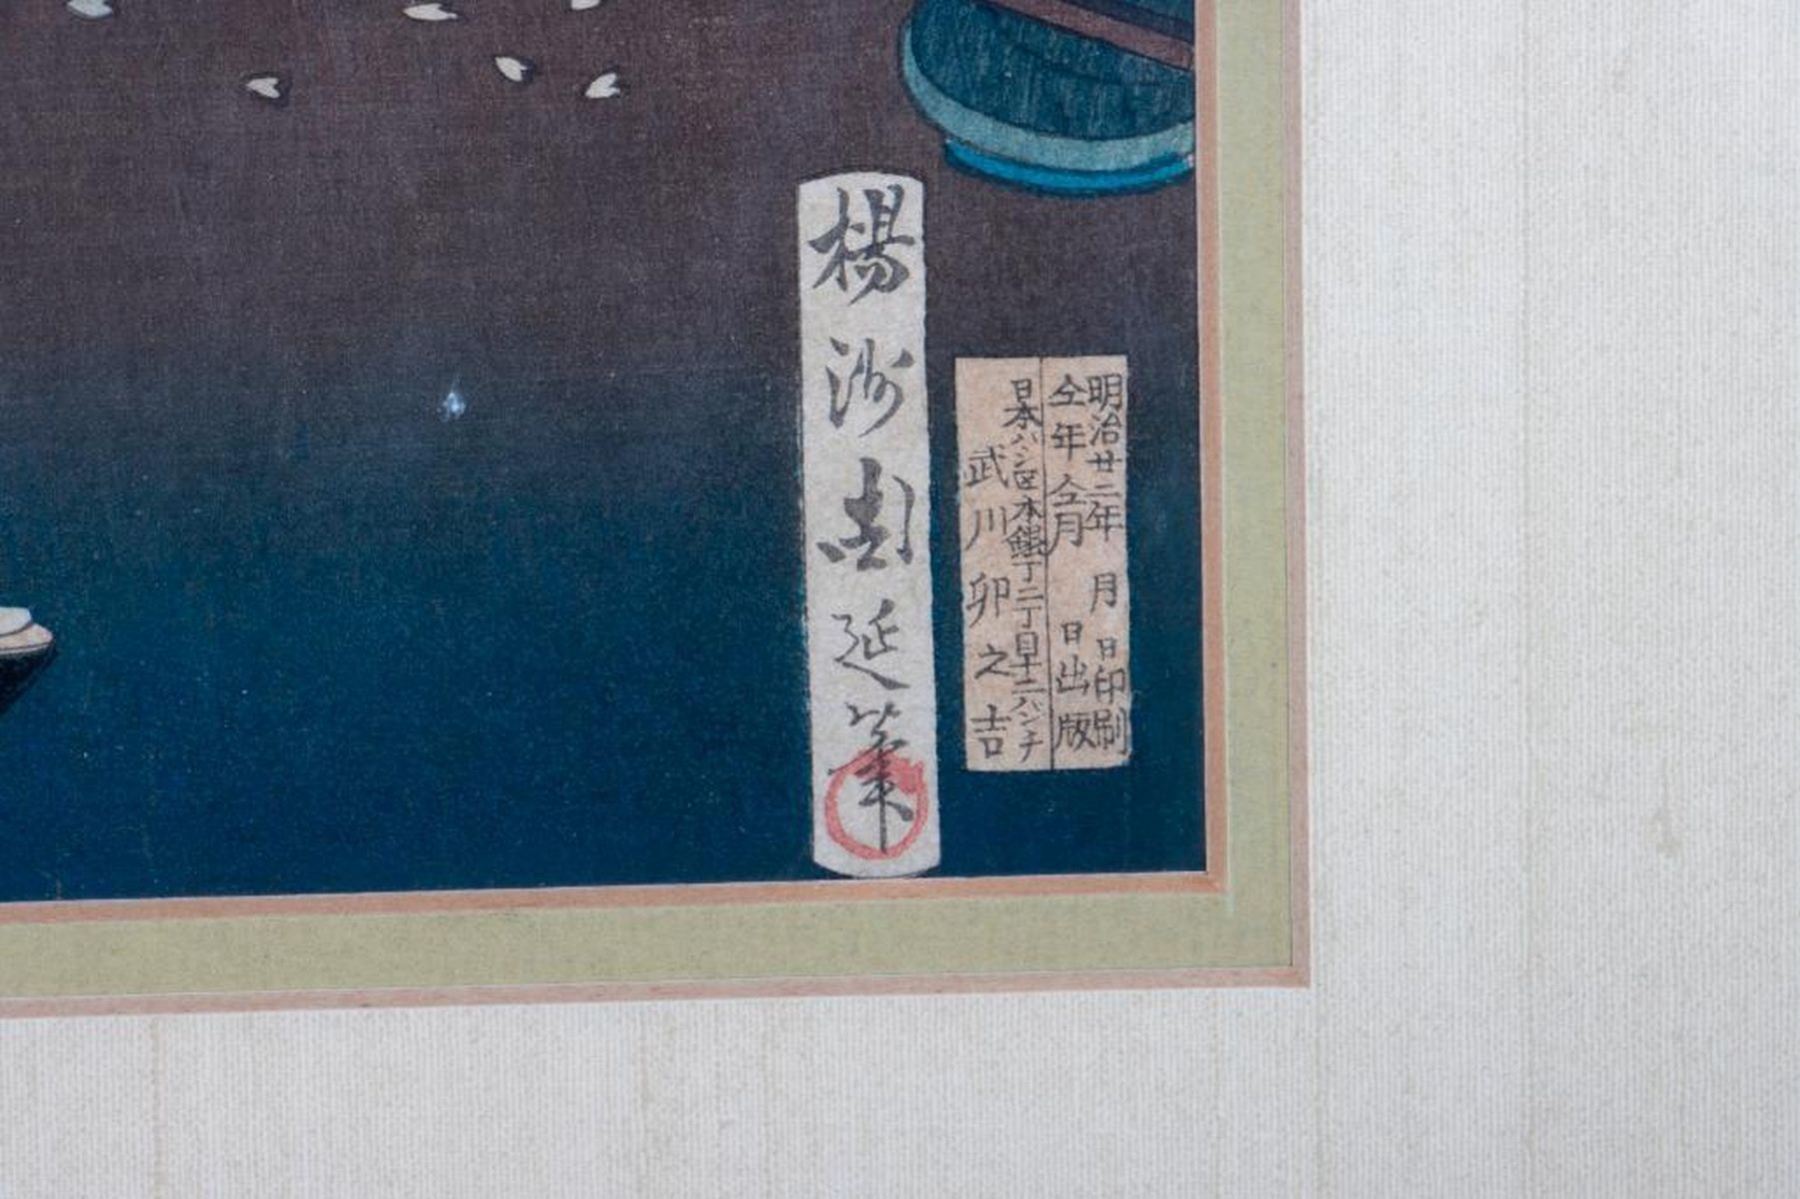 楊洲周延筆
明治廿二年 月 日印刷
仝年仝月 日出版
日本バシ区本銀丁二丁目十二バンチ
武川卯之吉